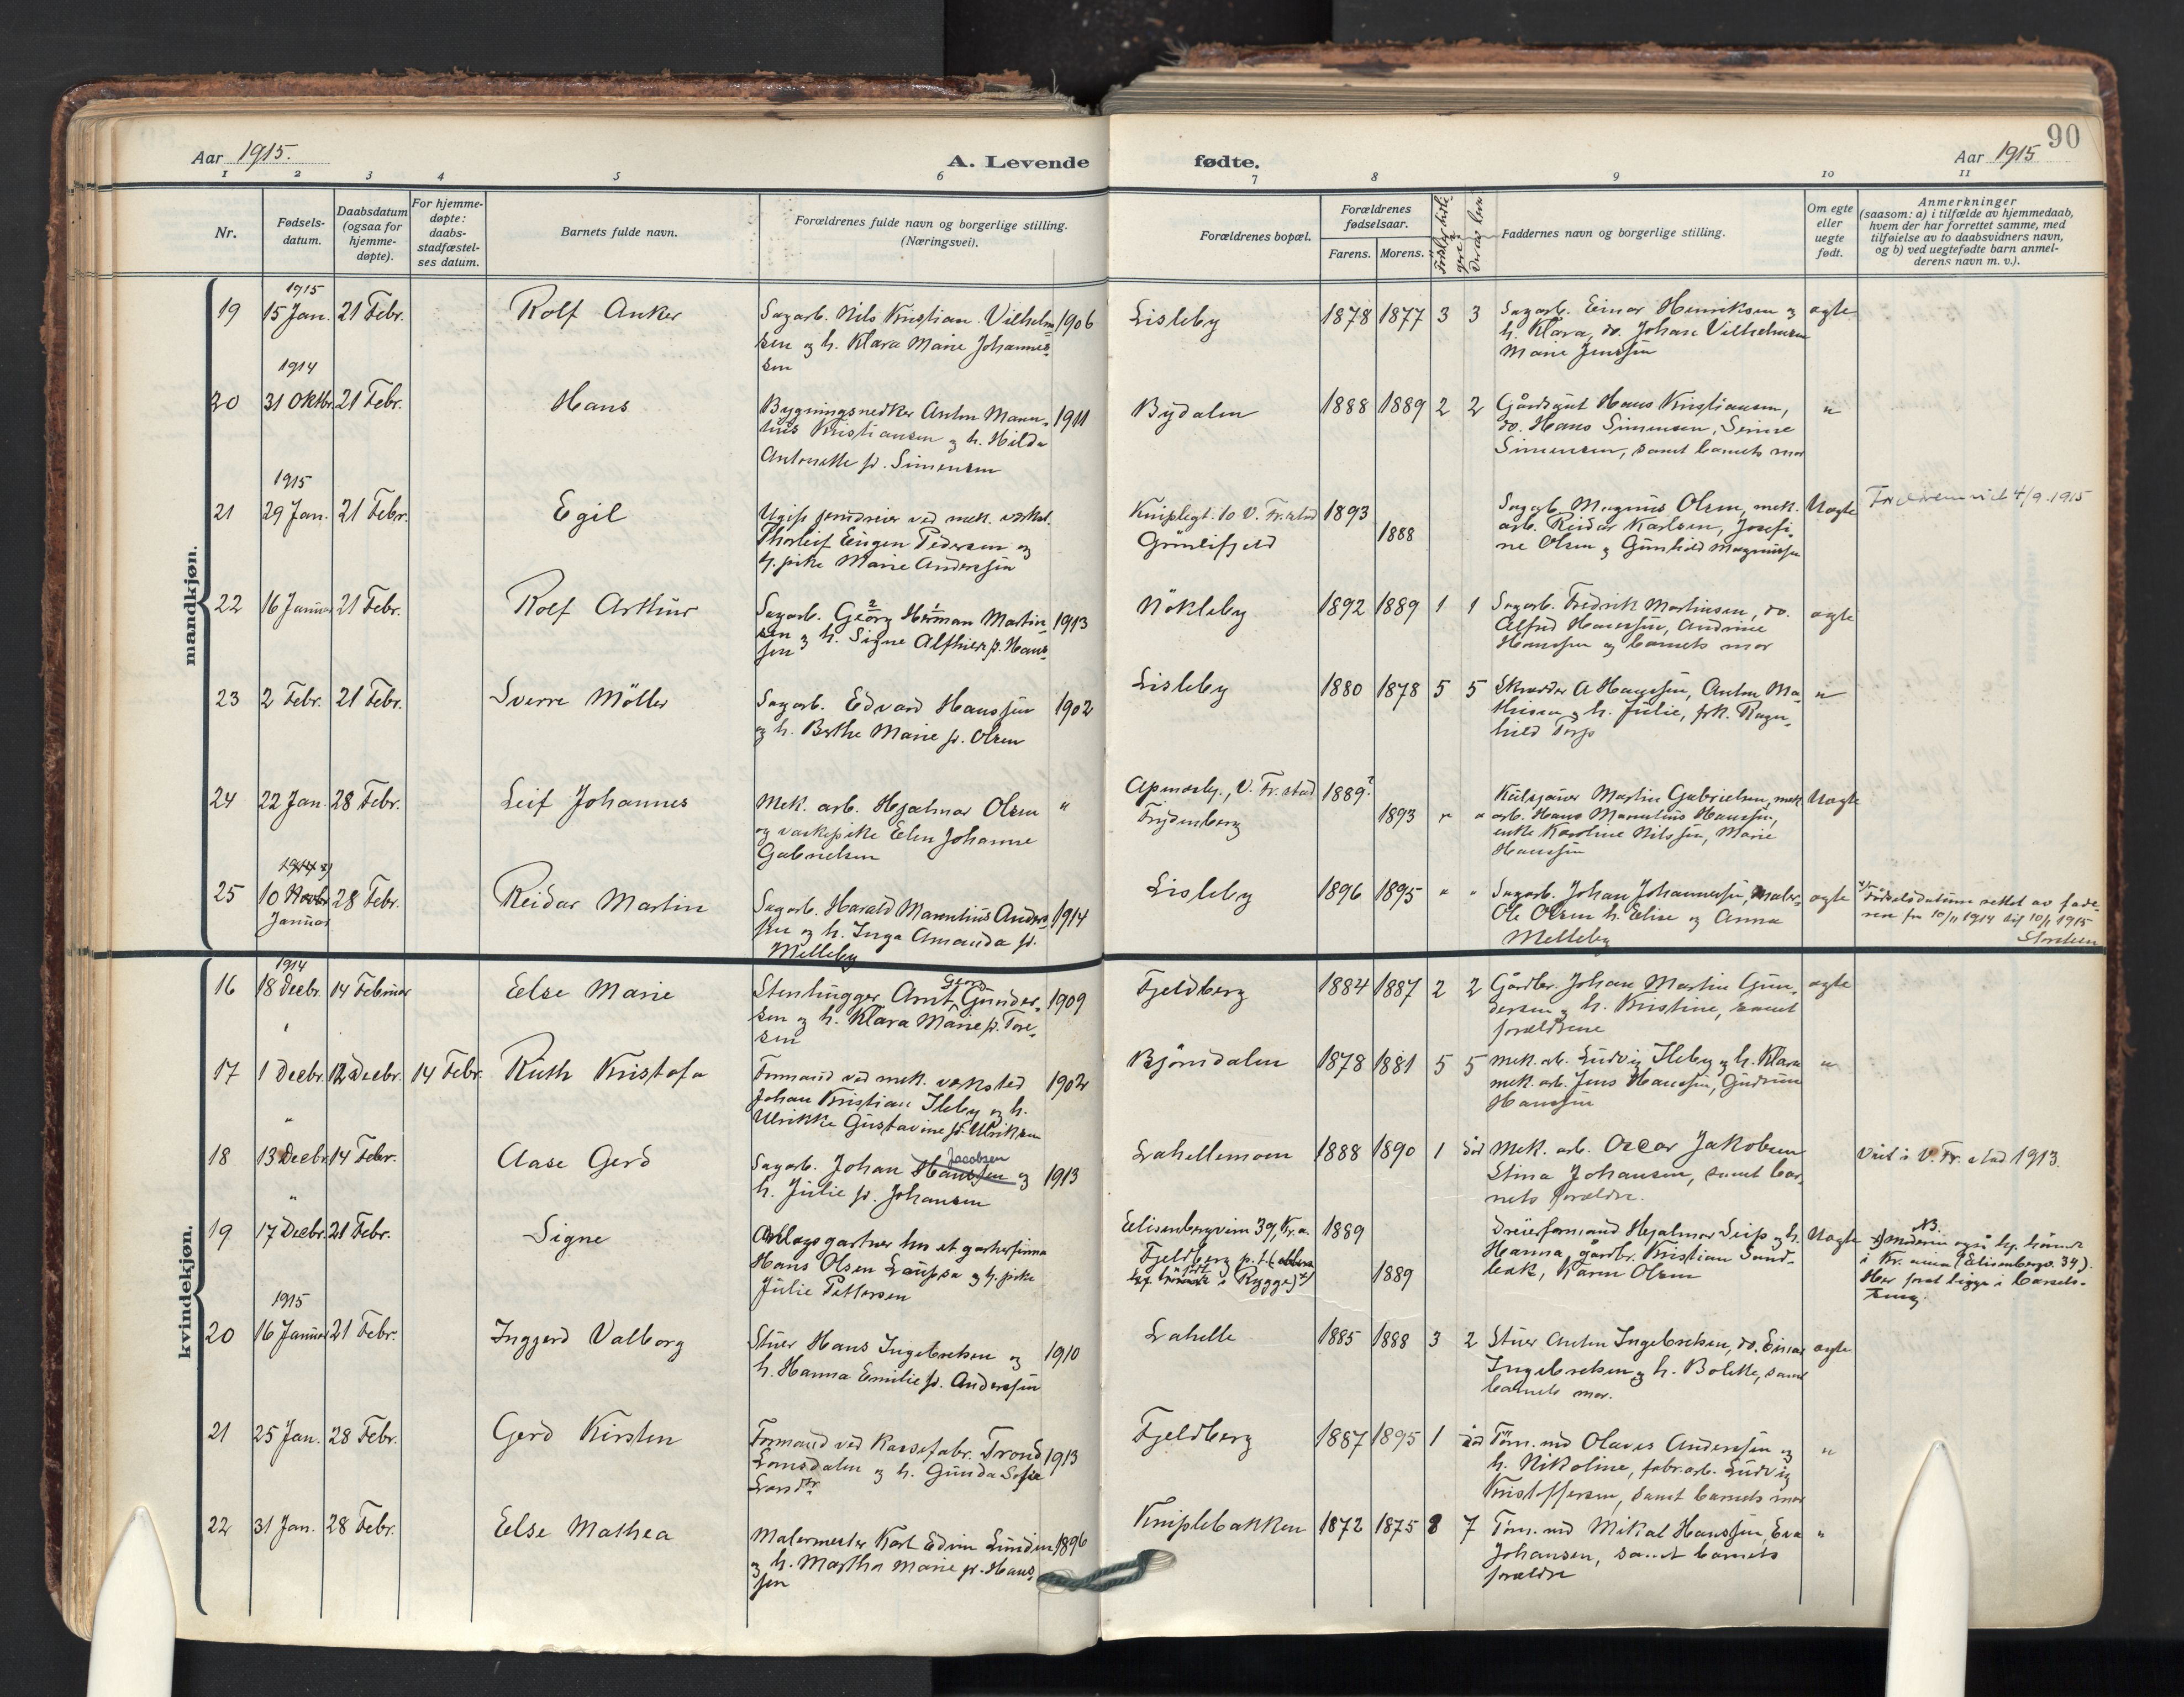 90
Aar 1915.
A. Levende
fødte.
Aar 1915
1 2 3 4 5 6 7 8 9 10 11
Nr.
Fødsels-
datum.
Daabsdatum
(ogsaa for
hjemme-
døpte).
For hjemme-
døpte:
daabs-
stadfæstel-
ses datum.
Barnets fulde navn.
Forældrenes fulde navn og borgerlige stilling.
(Næringsvei).
Forældrenes bopæl.
Forældrenes
fødselsaar.
Farens. Morens.
Faddernes navn og borgerlige stilling.
Om egte
eller
uegte
født.
Anmerkninger
(saasom: a) i tilfælde av hjemmedaab,
hvem der har forrettet samme, med
tilføielse av to daabsvidners navn,
og b) ved uegtefødte barn anmel-
derens navn m. v.).
mandkjøn.
1915
19 15 Jan. 21 Febr. Rolf Anker
Sagarb. Nils Kristian Vilhelm- 1906
sen og h. Klara Marie Johannes-
sen
Lisleby 1878 1877 3 3
Sagarb. Einar Henriksen og
h. Klara, do. Johan Vilhelmsen
Marie Jenssen
egte
1914
20 31 Oktbr. 21 Febr. Hans
Bygningssnedker Anton Mann- 1911
Kristiansen og h. Hilda
Antonette f. Simensen
Bydalen 1888 1889 2 2
Gårdsgut Hans Kristiansen,
do. Hans Simensen,
Simensen, samt barnets mor
"
1915
21 29 Jan. 21 Febr. Egil
Ugift jerndreier ved mek. verkst.
Thorleif Eugen Pedersen og
tj. pike Marie Anderssen
10 V. Fr.stad 1893
Grönlifjeld 1888
Sagarb. Magnus Olsen, mek.
arb. Reidar Karlsen, Josefi-
ne Olsen & Gunhild Magnussen
Uegte
4/9 1915
22 16 Januar 21 Febr. Rolf Arthur
Sagarb. Georg Herman Martin- 1913
sen og h. Signe Alfhild f. Hans-
sen
Nökleby 1892 1889 1 1
Sagarb. Fredrik Martinsen, do.
Alfred Hanssen, Andrine
Hanssen og barnets mor
egte
23 2 Febr. 21 Febr. Sverre Möller
Sagarb. Edvard Hanssen 1902
og h. Berthe Marie f. Olsen
Lisleby 1880 1878 5 5
Skrædder A Hanssen, Anton Ma-
thisen og h. Julie, frk. Ragn-
hild Torp
"
24 22 Jan. 28 Febr. Leif Johannes
Mek. arb. Hjalmar Olsen "
og vaskepike Elen Johanne
Gabrielsen
V. Fr. stad 1889?
Frydenberg 1893 " "
Martin Gabrielsen, mek.
arb. Hans Marentius Hanssen,
enke Karoline Nilssen, Marie
Hanssen
Uegte
1914 x)
25 10 Novbr 28 Febr. Reidar Martin
Januar
Sagarb. Harald Marentius Anders- 1914
sen og h. Inga Amanda f.
Melleby
Lisleby 1896 1895 " "
Sagarb. Johan Johannessen, maler-
Ole Olsen h. Elise og Anna
Melleby
egte
x) Fødselsdatum rettet av fade-
ren fra 10/11 1914 til 10/1 1915
kvindekjøn.
1914
16 18 Decbr. 14 Februar Else Marie
Gerh.
Stenhugger Arnt Gunder- 1909
sen og h. Klara Marie f. Tore-
sen
Fjeldberg 1884 1887 2 2
Gårdbr. Johan Martin Gun-
dersen og h. Kristine, samt
forældrene
egte
"
17 1 Decbr. 12 Decbr. 14 Febr. Ruth Kristofa
Formand ved mek. verksted 1902
Johan Kristian Ileby og h.
Ulrikke Gustavine f. Ulriksen
Björndalen 1878 1881 5 5
Mek. arb. Ludvig Ileby og h. Klara
mek. arb. Jens Hanssen, Gudrun
Hanssen
"
"
18 13 Decbr. 14 Febr. Aase Gerd
Jacobsen
Sagarb. Johan Hanssen og 1913
h. Julie f. Johansen
Lahellemoen 1888 1890 1 död
Mek. arb. Oscar Jakobsen
Stina Johansen, samt bar-
nets forældre.
Viet i V. Fr. stad 1913.
"
19 17 Decbr. 21 Febr. Signe
Anlægsgartner hos et gartnerfirma
Hans Olsen og tj. pike
Julie Pettersen
Elisenbergveien 39, Kr.a. 1889
Fjeldberg p. t.
i Rygge) x) 1889
Dreierformand Hjalmar Seip og h.
Hanna, gårdbr. Kristian Sund-
løkk, Karen Olsen
Uegte
NB.
x) Moderen også
i Kr.ania (Elisenbergv. 39).
Her for at ligge i barsel-
seng.
1915
20 16 Januar 21 Febr. Inggerd Valborg
Stuer Hans Ingebretsen og 1910
h. Hanna Emilie f. Anderssen
Lahelle 1885 1888 3 2
Stuer Anton Ingebretsen, do. Einar
Ingebretsen og h. Bolette, samt
barnets mor.
egte
21 25 Jan. 28 Febr. Gerd Kirsten
Formand ved kassefabr. Trond 1913
Lomsdalen og h. Gunda Sofie
Fjeldberg 1887 1895 1 död
Tøm. md Olaves Anderssen og
h. Nikoline, fabr. arb. Ludvig
Kristoffersen, samt barnets mor
"
22 31 Jan. 28 Febr. Else Mathea
Malermester Karl Edvin Lunden 1896
og h. Martha Marie f. Hans-
sen
Kniplebakken 1872 1875 8 7
Tøm. md Mikal Hanssen, Eva
Johansen, samt barnets
forældre
"